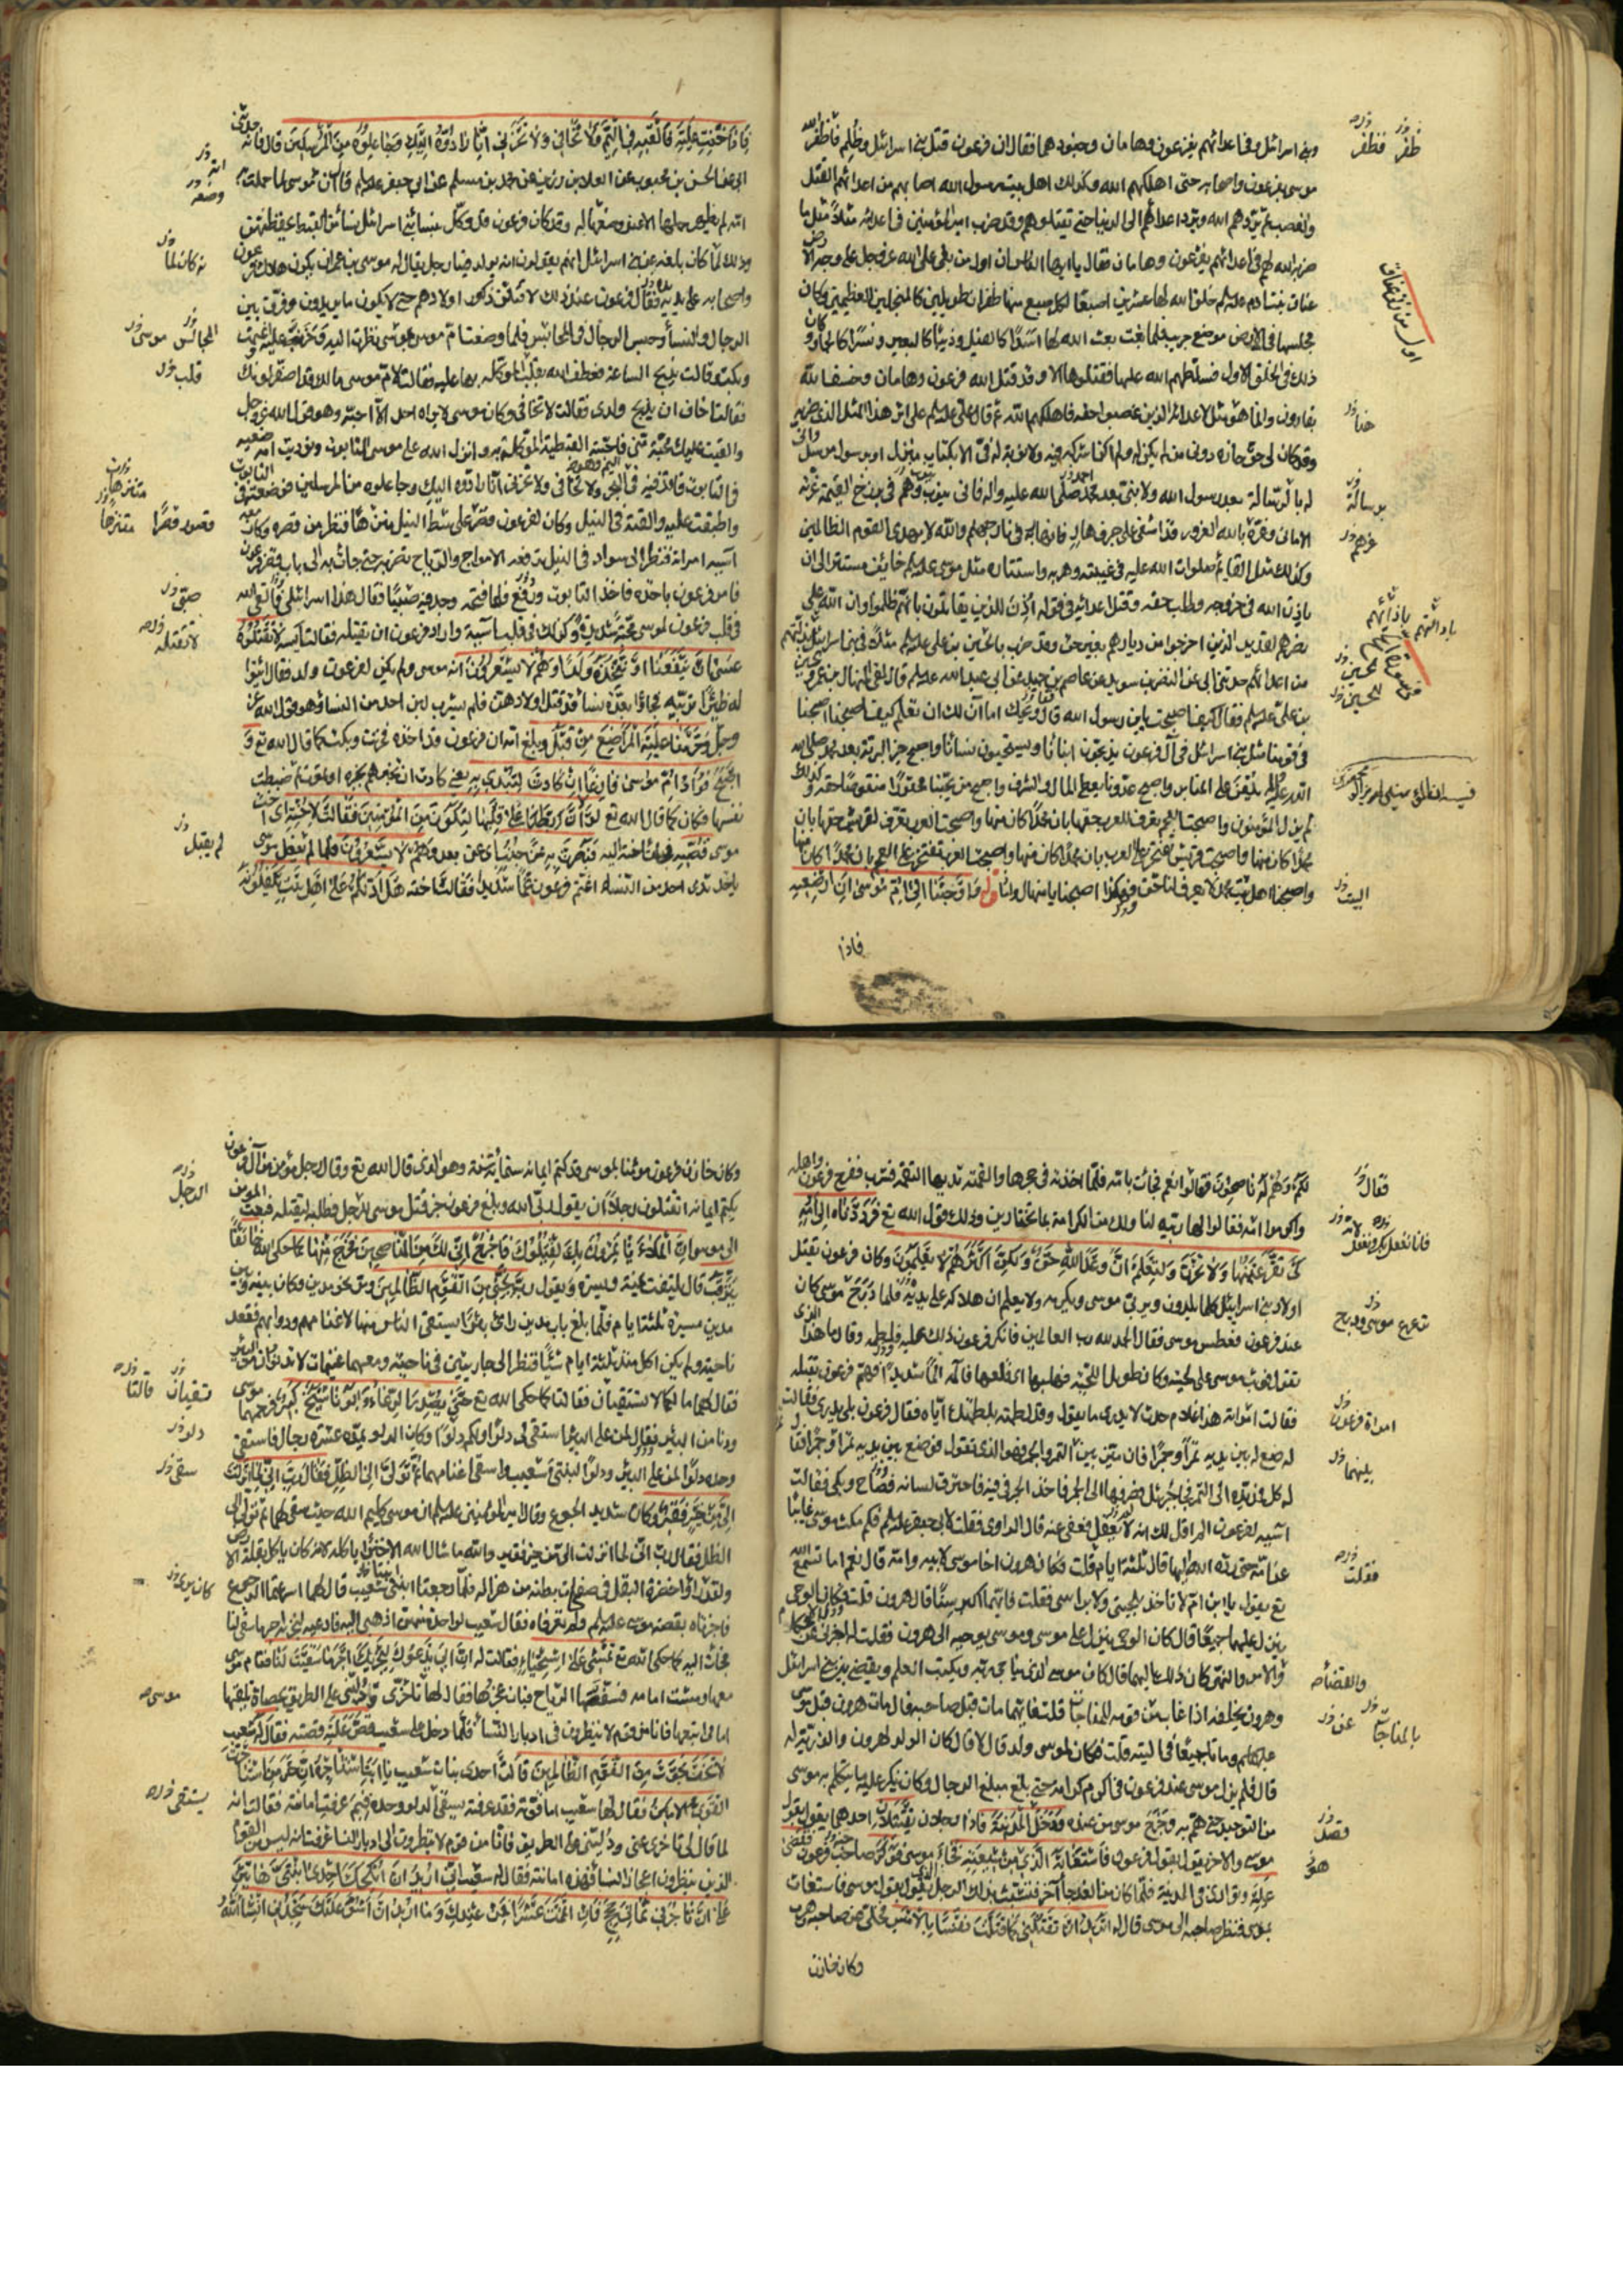 وبني اسرائيل وفي اعدائهم بفرعون وهامان وجنودهما فقال ان فرعون قتل بني اسرائيل وظلم فاظفر الله
موسى بفرعون واصحابه حتى اهلكهم الله وكذلك اهل بيت رسول الله اصابهم من اعدائهم القتل
والغصب ثم يردهم الله ويرد اعدائهم الى الدنيا حتى يقتلوهم وقد ضرب امير المؤمنين في اعدائه مثلا مثل ما
ضربه الله لهم في اعدائهم بفرعون وهامان فقال يا ايها الناس ان اول من بغى على الله عز وجل على وجه الارض
عناق بنت ادم عليه السلم خلق الله لها عشرين اصبعا لكل اصبع منها ظفران طويلين كالمنجلين العظيمين وكان
مجلسها في الارض موضع جريب فلما بغت بعث الله لها اسدا كالفيل وذئبا كالبعير ونسرا كالحمار وكان
ذلك في الخلق الاول فسلطهم الله عليها فقتلوها الا وقد قتل الله فرعون وهامان وخسف الله
بقارون وانما هو مثل لاعدائه الذين غصبوا حقه فاهلكهم الله ثم قال علي عليه السلم على اثر هذا المثل الذي ضربه
وقد كان لي حق حازه دوني من لم يكن له ولم اكن اشركه فيه ولا توبة له الا بكتاب منزل او برسول مرسل وانى
له بالرسالة بعد رسول الله ولا نبي بعد محمد صلى الله عليه واله فانى يتوب وهم في برزخ القيمة غرته
الاماني وغره بالله الغرور قد اشفى على جرف هار فانهار به في نار جهنم والله لا يهدي القوم الظالمين
وكذلك مثل القائم صلوات الله عليه في غيبته وهربه واستتاره مثل موسى عليه السلم خائف مستتر الى ان
ياذن الله في خروجه وطلب حقه وقتل اعدائه في قوله اذن للذين يقاتلون بانهم ظلموا وان الله على
نصرهم لقدير الذين اخرجوا من ديارهم بغير حق وقد ضرب بالحسين بن علي عليه السلم مثلا في بني اسرائيل
من اعدائهم حدثني ابي عن النضر بن سويد عن عاصم بن حميد عن ابي عبد الله عليه السلم قال لقي المنهال بن عمرو
بن علي عليه السلم فقال كيف اصبحت يابن رسول الله قال ويحك اما آن لك ان تعلم كيف اصبحنا اصبحنا
في قومنا مثل بني اسرائيل في آل فرعون يذبحون ابنائنا ويستحيون نسائنا واصبح خير البرية بعد محمد صلى الله
عليه واله يلعن على المنابر واصبح عدونا يعطى المال والشرف واصبح من يحبنا محقورا منقوصا حقه وكذلك
لم يزل المؤمنون واصبحت العجم تعرف للعرب حقها بان محمدا كان منها واصبحت العرب تعرف لقريش حقها بان
محمدا كان منها واصبحت قريش تفتخر على العرب بان محمدا كان منها واصبحت العرب تفتخر على العجم بان محمدا كان منها
واصبحنا اهل بيت محمد لا يعرف لنا حق فهكذا اصبحنا يا منهال واما قوله واوحينا الى ام موسى ان ارضعيه
فاذا
ظفر فظفر
اول من زنى عناق
هذا
برسالة
غرهم
باذائهم
للحسين
البيت
فاذا خفت عليه فالقيه في اليم ولا تخافي ولا تحزني انا رادوه اليك وجاعلوه من المرسلين قال فانه حدثني
ابي عن الحسن بن محبوب عن العلاء بن رزين عن محمد بن مسلم عن ابي جعفر عليه السلم قال ان موسى لما حملت به
امه لم يظهر حملها الا عند وضعها له وقد كان فرعون قد وكل بنساء بني اسرائيل نساء من القبط يحفظنهن
وذلك لما كان بلغه عن بني اسرائيل انهم يقولون انه يولد فينا رجل يقال له موسى بن عمران يكون هلاك فرعون
واصحابه على يديه فقال فرعون عند ذلك لاقتلن ذكور اولادهم حتى لا يكون ما يريدون وفرق بين
الرجال والنساء وحبس الرجال في المحابس فلما وضعت ام موسى بموسى نظرت اليه وحزنت عليه واغتمت
وبكت وقالت يذبح الساعة فعطف الله بقلب الموكلة بها عليه فقالت لام موسى ما لك قد اصفر لونك
فقالت اخاف ان يذبح ولدي فقالت لا تخافي وكان موسى لا يراه احد الا احبه وهو قول الله عز وجل
والقيت عليك محبة مني فاحبته القبطية الموكلة به وانزل الله على موسى التابوت ونوديت امه ضعيه
في التابوت فاقذفيه في اليم وهو البحر ولا تخافي ولا تحزني انا رادوه اليك وجاعلوه من المرسلين فوضعته في التابوت
واطبقت عليه والقته في النيل وكان لفرعون قصر على شط النيل متنزها فنظر من قصره وكانت معه
آسية امراته فنظر الى سواد في النيل ترفعه الامواج والرياح تضربه حتى جائت به الى باب قصر فرعون
فامر فرعون باخذه فاخذ التابوت ورفع فلما فتحه وجد فيه صبيا فقال هذا اسرائيلي فالقى الله
في قلب فرعون لموسى محبة شديدة وكذلك في قلب آسية واراد فرعون ان يقتله فقالت آسية لا تقتلوه
عسى ان ينفعنا او نتخذه ولدا وهم لا يشعرون انه موسى ولم يكن لفرعون ولد فقال ائتوا
له ظئرا تربيه فجاؤا بعدة نساء قد قتل اولادهن فلم يشرب لبن احد من النساء وهو قول الله عز
وجل وحرمنا عليه المراضع من قبل وبلغ امه ان فرعون قد اخذه فحزنت وبكت كما قال الله تع و
اصبح فؤاد ام موسى فارغا ان كادت لتبدي به يعني كادت ان تخبرهم بخبره او تموت ثم ضبطت
نفسها فكان كما قال الله تع لولا ان ربطنا على قلبها لتكون من المؤمنين فقالت لاخته اي اخت
موسى قصيه اخته اليه فبصرت به عن جنب اي عن بعد وهم لا يشعرون فلما لم يقبل موسى
ياخذ ثدي احد من النساء اغتم فرعون غما شديدا فقالت اخته هل ادلكم على اهل بيت يكفلونه
المحابس موسى
قلب
قصور قصرا متنزها
صبي
لا تقتله
لم يقبل
لكم وهم له ناصحون فقالوا نعم فجائت بامه فلما اخذته في حجرها والقمته ثديها التقمه فشرب ففرح فرعون واهله
واكرموا امه فقالوا لها ربيه لنا ولك منا الكرامة ما تختارين وذلك قول الله تع فرددناه الى امه
كي تقر عينها ولا تحزن ولتعلم ان وعد الله حق ولكن اكثرهم لا يعلمون وكان فرعون يقتل
اولاد بني اسرائيل كلما يلدون ويربي موسى ويكرمه ولا يعلم ان هلاكه على يديه فلما درج موسى كان
عند فرعون فعطس موسى فقال الحمد لله رب العالمين فانكر فرعون ذلك عليه فلطمه وقال ما هذا الذي
تقول فوثب موسى على لحيته وكان طويل اللحية فهلبها اي قلعها فآلمه الما شديدا فهم فرعون بقتله
فقالت امراته هذا غلام حدث لا يدري ما يقول وقد لطمته بلطمتك اياه فقال فرعون بلى يدري فقالت
له ضع له بين يديه تمرا وجمرا فان ميز بين التمر والجمر فهو الذي تقول فوضع بين يديه تمرا وجمرا فقال
له كل فمد يده الى التمر فجاء جبرئيل فصرفها الى الجمر فاخذ الجمر في فيه فاحترق لسانه فصاح وبكى فقالت
آسية لفرعون الم اقل لك انه لم يعقل فعفى عنه قال الراوي فقلت لابي جعفر عليه السلم فكم مكث موسى غائبا
عن امه حتى رده الله اليها قال ثلثة ايام قلت فكان هرون اخا موسى لابيه وامه قال نعم اما تسمع الله
تع يقول يا ابن ام لا تاخذ بلحيتي ولا براسي فقلت فايهما اكبر سنا قال هرون قلت فكان الوحي
ينزل عليهما جميعا قال كان الوحي ينزل على موسى وموسى يوحيه الى هرون فقلت له اخبرني عن الاحكام
والامر والنهي كان ذلك اليهما قال كان موسى الذي يناجي ربه ويكتب العلم ويقضي بين بني اسرائيل
وهرون يخلفه اذا غاب من قومه للمناجاة قلت فايهما مات قبل صاحبه قال مات هرون قبل موسى
عليهما السلم وماتا جميعا في التيه قلت فكان لموسى ولد قال لا قال كان الولد لهرون والذرية له
قال فلم يزل موسى عند فرعون في اكرم كرامة حتى بلغ مبلغ الرجال وكان ينكر عليه ما يتكلم به موسى
من التوحيد حتى هم به وخرج موسى من عنده فدخل المدينة فاذا رجلان يقتتلان احدهما يقول بقول
موسى والاخر يقول بقول فرعون فاستغاثه الذي من شيعته فجاء موسى فوكز صاحب فرعون فقضى
عليه وتوارى في المدينة فلما كان من الغد جاء آخر فتشبث بذلك الرجل الذي يقول بقول موسى فاستغاث
بموسى فنظر صاحبه الى موسى قال له اتريد ان تقتلني كما قتلت نفسا بالامس فخلى عن صاحبه وهرب
وكان خازن
فقال
امراة فرعون
فقلت
والقضاء
بالمناجاة
فصل
وكان خازن فرعون مؤمنا بموسى قد كتم ايمانه ستمائة سنة وهو الذي قال الله تع وقال رجل مؤمن من آل فرعون
يكتم ايمانه اتقتلون رجلا ان يقول ربي الله وبلغ فرعون خبر قتل موسى الرجل فطلبه ليقتله فبعث المؤمن
الى موسى ان الملاء ياتمرون بك ليقتلوك فاخرج اني لك من الناصحين فخرج منها كما حكى الله خائفا
يترقب قال يلتفت يمنة ويسرة ويقول رب نجني من القوم الظالمين ومر نحو مدين وكان بينه وبين
مدين مسيرة ثلثة ايام فلما بلغ باب مدين راى بئرا يستقي الناس منها لاغنامهم ودوابهم فقعد
ناحية ولم يكن اكل منذ ثلثة ايام شيئا فنظر الى جاريتين في ناحية ومعهما غنيمات لا تدنوان من البئر
فقال لهما ما لكما لا تستقيان فقالتا كما حكى الله تع حتى يصدر الرعاء وابونا شيخ كبير فرحمهما موسى
ودنا من البئر فقال لمن على البئر استقي لي دلوا ولكم دلوا وكان الدلو يمده عشرة رجال فاستقى
وحده دلوا لمن على البئر ودلوا لبنتي شعيب واستقى اغنامهما ثم تولى الى الظل فقال رب اني لما انزلت
الي من خير فقير وكان شديد الجوع وقال امير المؤمنين عليه السلم ان موسى كليم الله حيث سقى لهما ثم تولى الى
الظل فقال رب اني لما انزلت الي من خير فقير والله ما سال الله الا خبزا ياكله لانه كان ياكل بقلة الارض
ولقد راوا خضرة البقل في صفحات بطنه من هزاله فلما رجعتا ابنتي شعيب قال لهما اسرعتما الرجوع
فاخبرتاه بقصة موسى عليه السلم ولم تعرفاه فقال شعيب لواحدة منهن اذهبي اليه فادعيه لنجزيه اجر ما سقى لنا
فجائت اليه كما حكى الله تع تمشي على استحياء فقالت له ان ابي يدعوك ليجزيك اجر ما سقيت لنا فقام موسى
معها ومشت امامه فسفقتها الرياح فبان عجزها فقال لها تاخري ودليني على الطريق بحصاة تلقيها
امامي اتبعها فانا من قوم لا ينظرون في ادبار النساء فلما دخل على شعيب قص عليه قصته فقال له شعيب
لا تخف نجوت من القوم الظالمين قالت احدى بنات شعيب يا ابت استاجره ان خير من استاجرت
القوي الامين فقال لها شعيب اما قوته فقد عرفته بسقي الدلو وحده فبم عرفت امانته فقالت انه
لما قال لي تاخري عني ودليني على الطريق فانا من قوم لا ينظرون الى ادبار النساء عرفت انه ليس من القوم
الذين ينظرون اعجاز النساء فهذه امانته فقال له شعيب اني اريد ان انكحك احدى ابنتي هاتين
على ان تاجرني ثماني حجج فان اتممت عشرا فمن عندك وما اريد ان اشق عليك ستجدني ان شاء الله
الرجل
تسقيان قالتا
سقى
موسى
يستقي